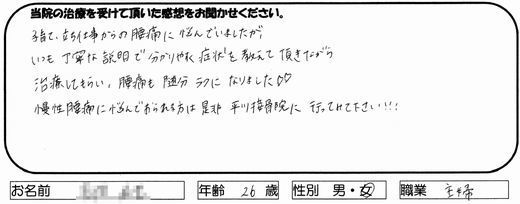 当院の治療を受けて頂いた感想をお聞かせください。
子育て、立ち仕事からの腰痛に悩んでいましたが
いつも丁寧な説明で分かりやすく症状を教えて頂きながら
治療してもらい、腰痛も随分ラクになりました♡♡
慢性腰痛に悩んでおられる方は是非 平川接骨院に行ってみて下さい!!!
お名前 年齢 26 歳 性別 男・女 職業 主婦